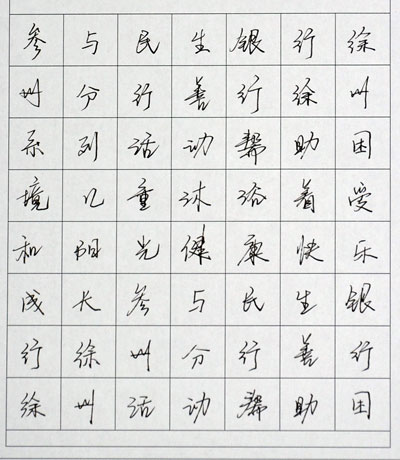 参与民生银行徐
州分行善行徐州
系列活动帮助困
境儿童沐浴着爱
和阳光健康快乐
成长参与民生银
行徐州分行善行
徐州活动帮助困